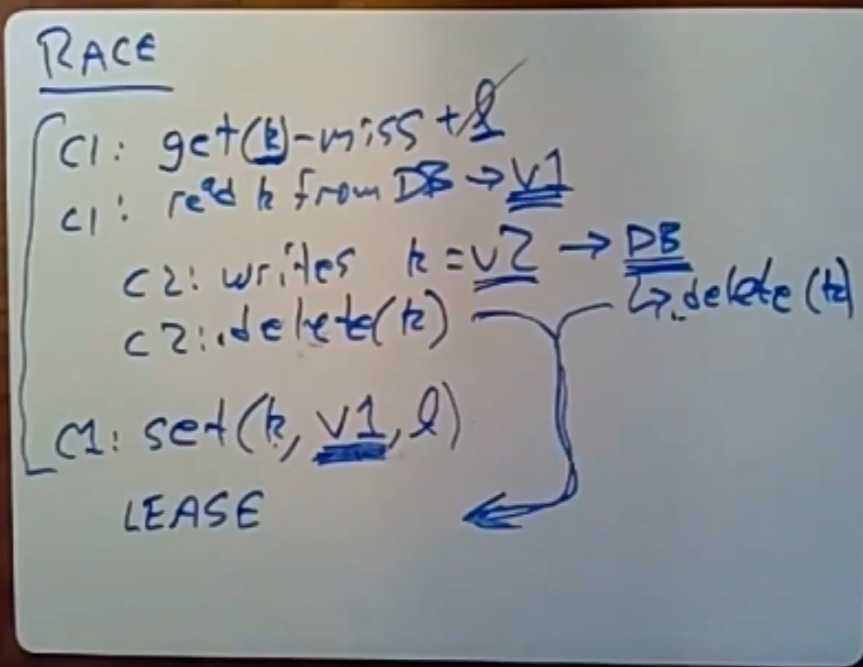 RACE
C1: get(k)-miss + l
C1: read k from DB → v1
C2: writes k = v2 → DB
↳. delete(k)
C2: .delete(k)
C1: set(k, v1, l)
LEASE